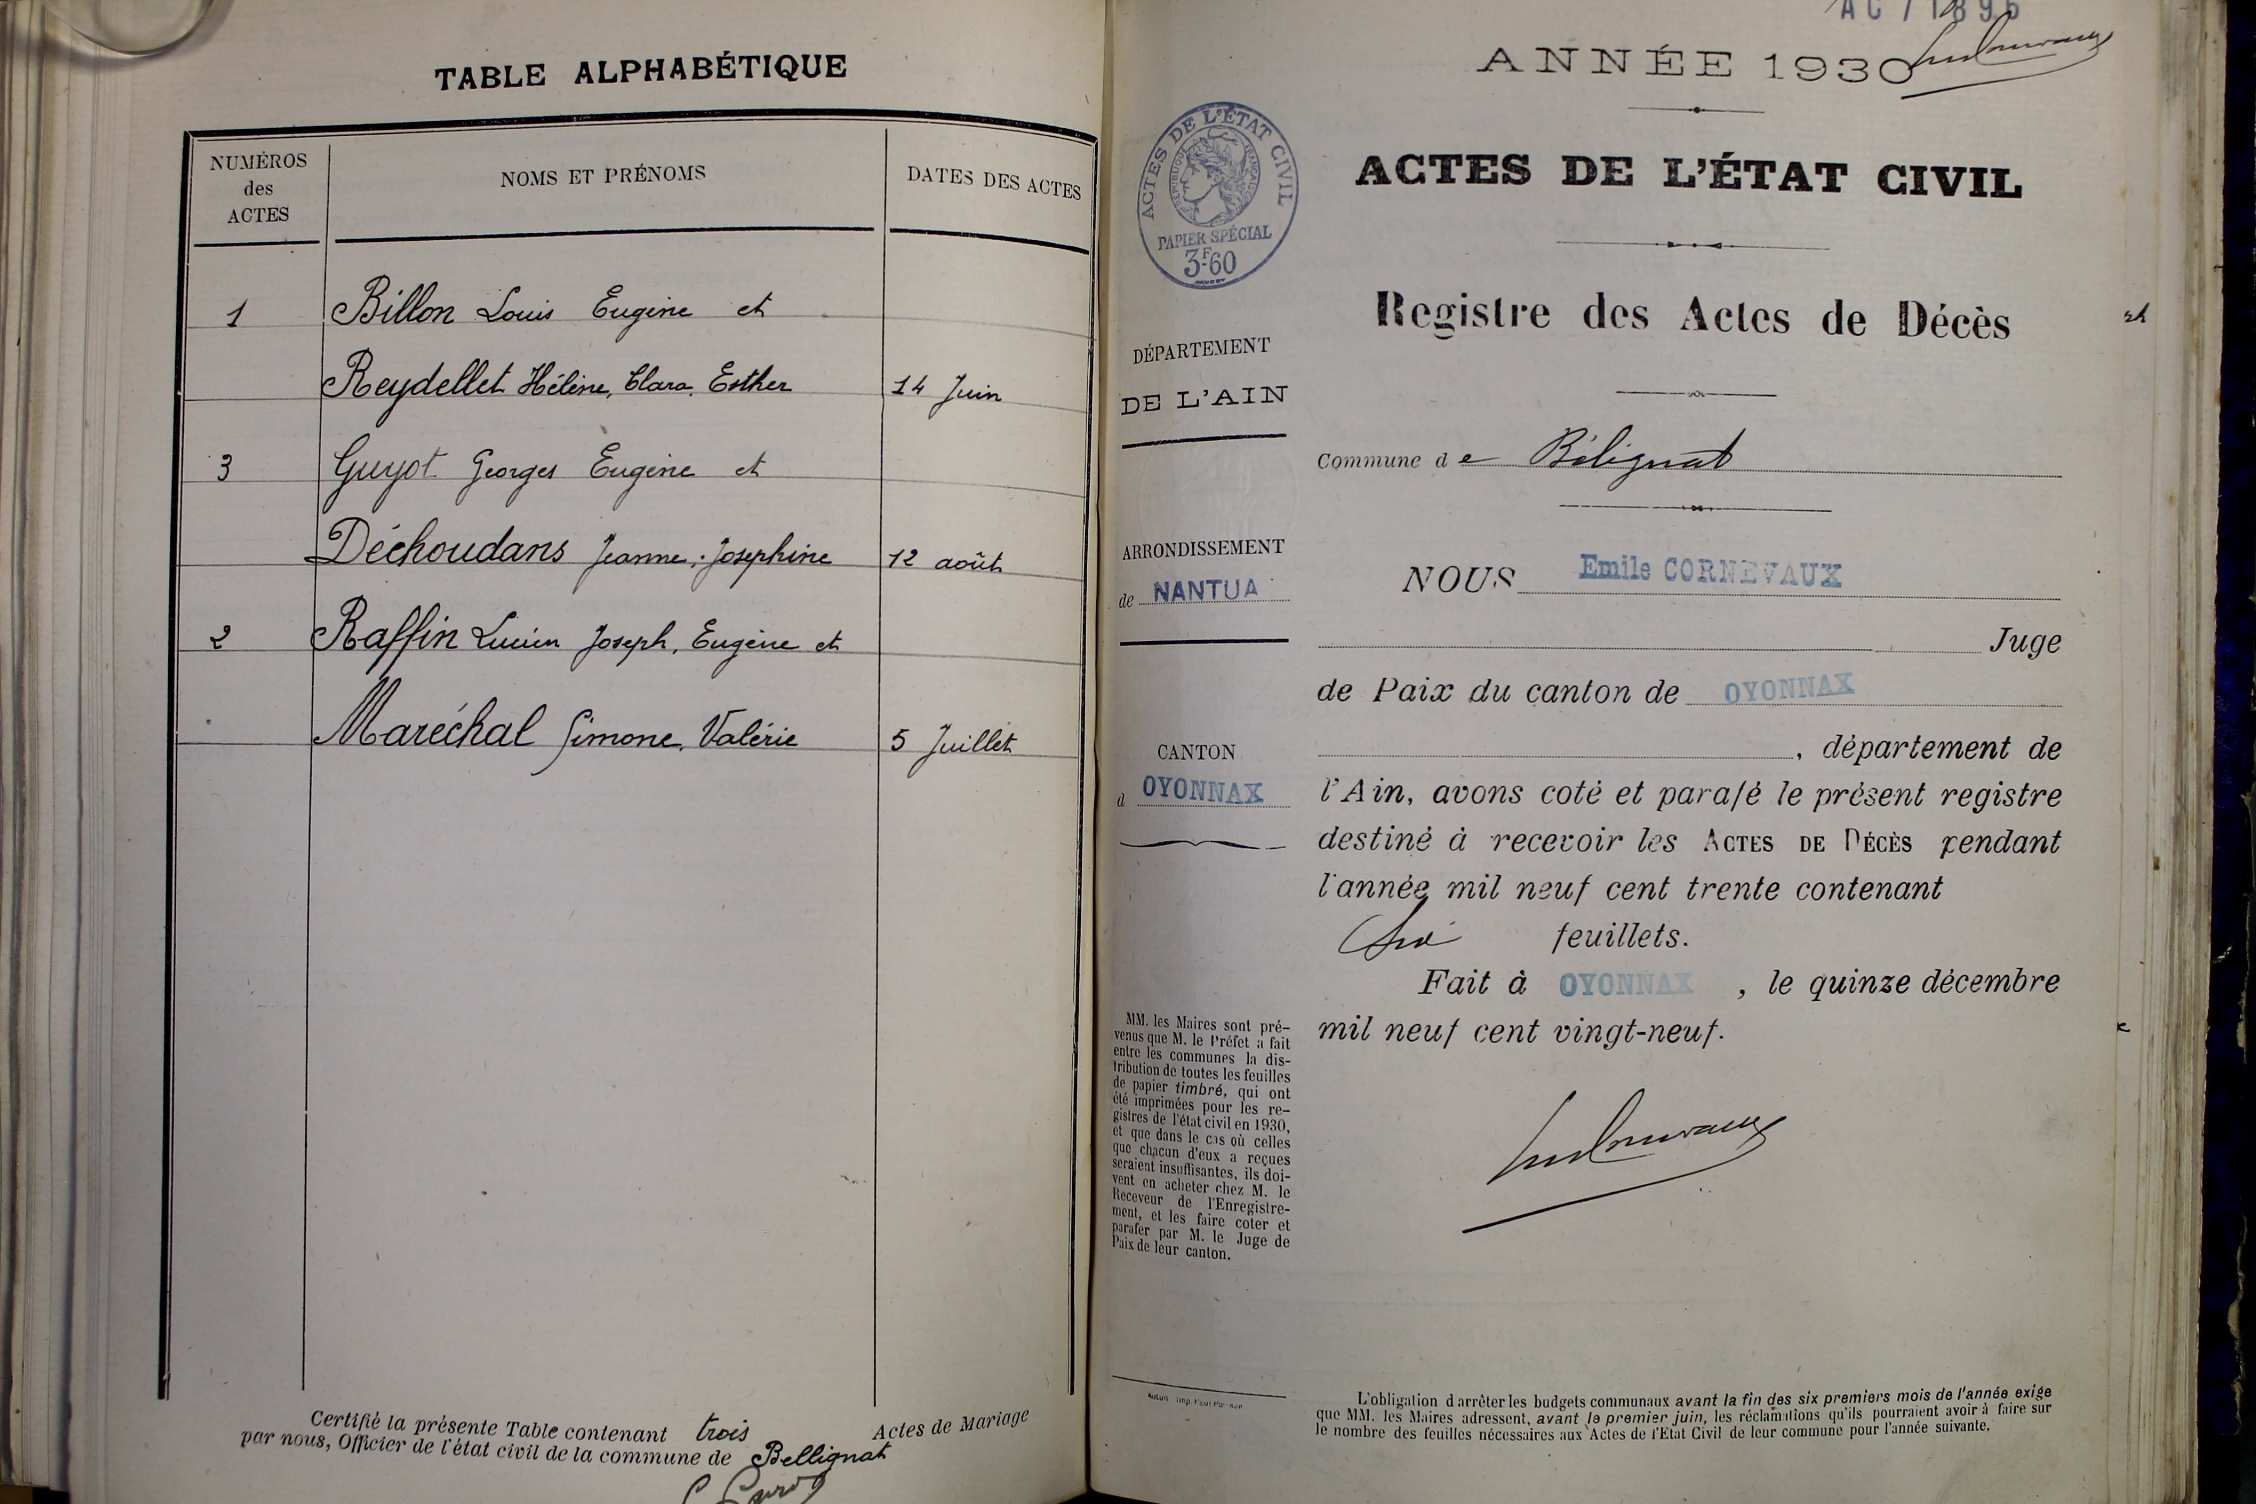 TABLE ALPHABÉTIQUE
NUMÉROS
des
ACTES
NOMS ET PRÉNOMS
DATES DES ACTES
1 Billon Louis Eugène et
Reydellet Hélène, Clara, Esther 14 Juin
3 Guyot Georges Eugène et
Déchoudans Jeanne, Josephine 12 août
2 Raffin Lucien Joseph, Eugène et
Maréchal Simone, Valérie 5 Juillet
Certifié la présente Table contenant trois Actes de Mariage
par nous, Officier de l'état civil de la commune de Bellignat
AC 71896
ANNÉE 1930
ACTES DE L'ÉTAT CIVIL
RÉPUBLIQUE FRANÇAISE
PAPIER SPÉCIAL
3F60
DÉPARTEMENT
DE L'AIN
ARRONDISSEMENT
de NANTUA
CANTON
d OYONNAX
MM. les Maires sont pré-
venus que M. le Préfet a fait
entre les communes la dis-
tribution de toutes les feuilles
de papier timbré, qui ont
été imprimées pour les re-
gistres de l'état civil en 1930,
et que dans le cas où celles
que chacun d'eux a reçues
seraient insuffisantes, ils doi-
vent en acheter chez M. le
Receveur de l'Enregistre-
ment, et les faire coter et
parafer par M. le Juge de
Paix de leur canton.
ACTES DE L'ÉTAT CIVIL
Registre des Actes de Décès
Commune de Bélignat
NOUS Emile CORNEVAUX
Juge
de Paix du canton de OYONNAX
, département de
l'Ain, avons coté et parafé le présent registre
destiné à recevoir les ACTES DE DÉCÈS pendant
l'année mil neuf cent trente contenant
feuillets.
Fait à OYONNAX , le quinze décembre
mil neuf cent vingt-neuf.
L'obligation d'arrêter les budgets communaux avant la fin des six premiers mois de l'année exige
que MM. les Maires adressent, avant le premier juin, les réclamations qu'ils pourraient avoir à faire sur
le nombre des feuilles nécessaires aux Actes de l'Etat Civil de leur commune pour l'année suivante.